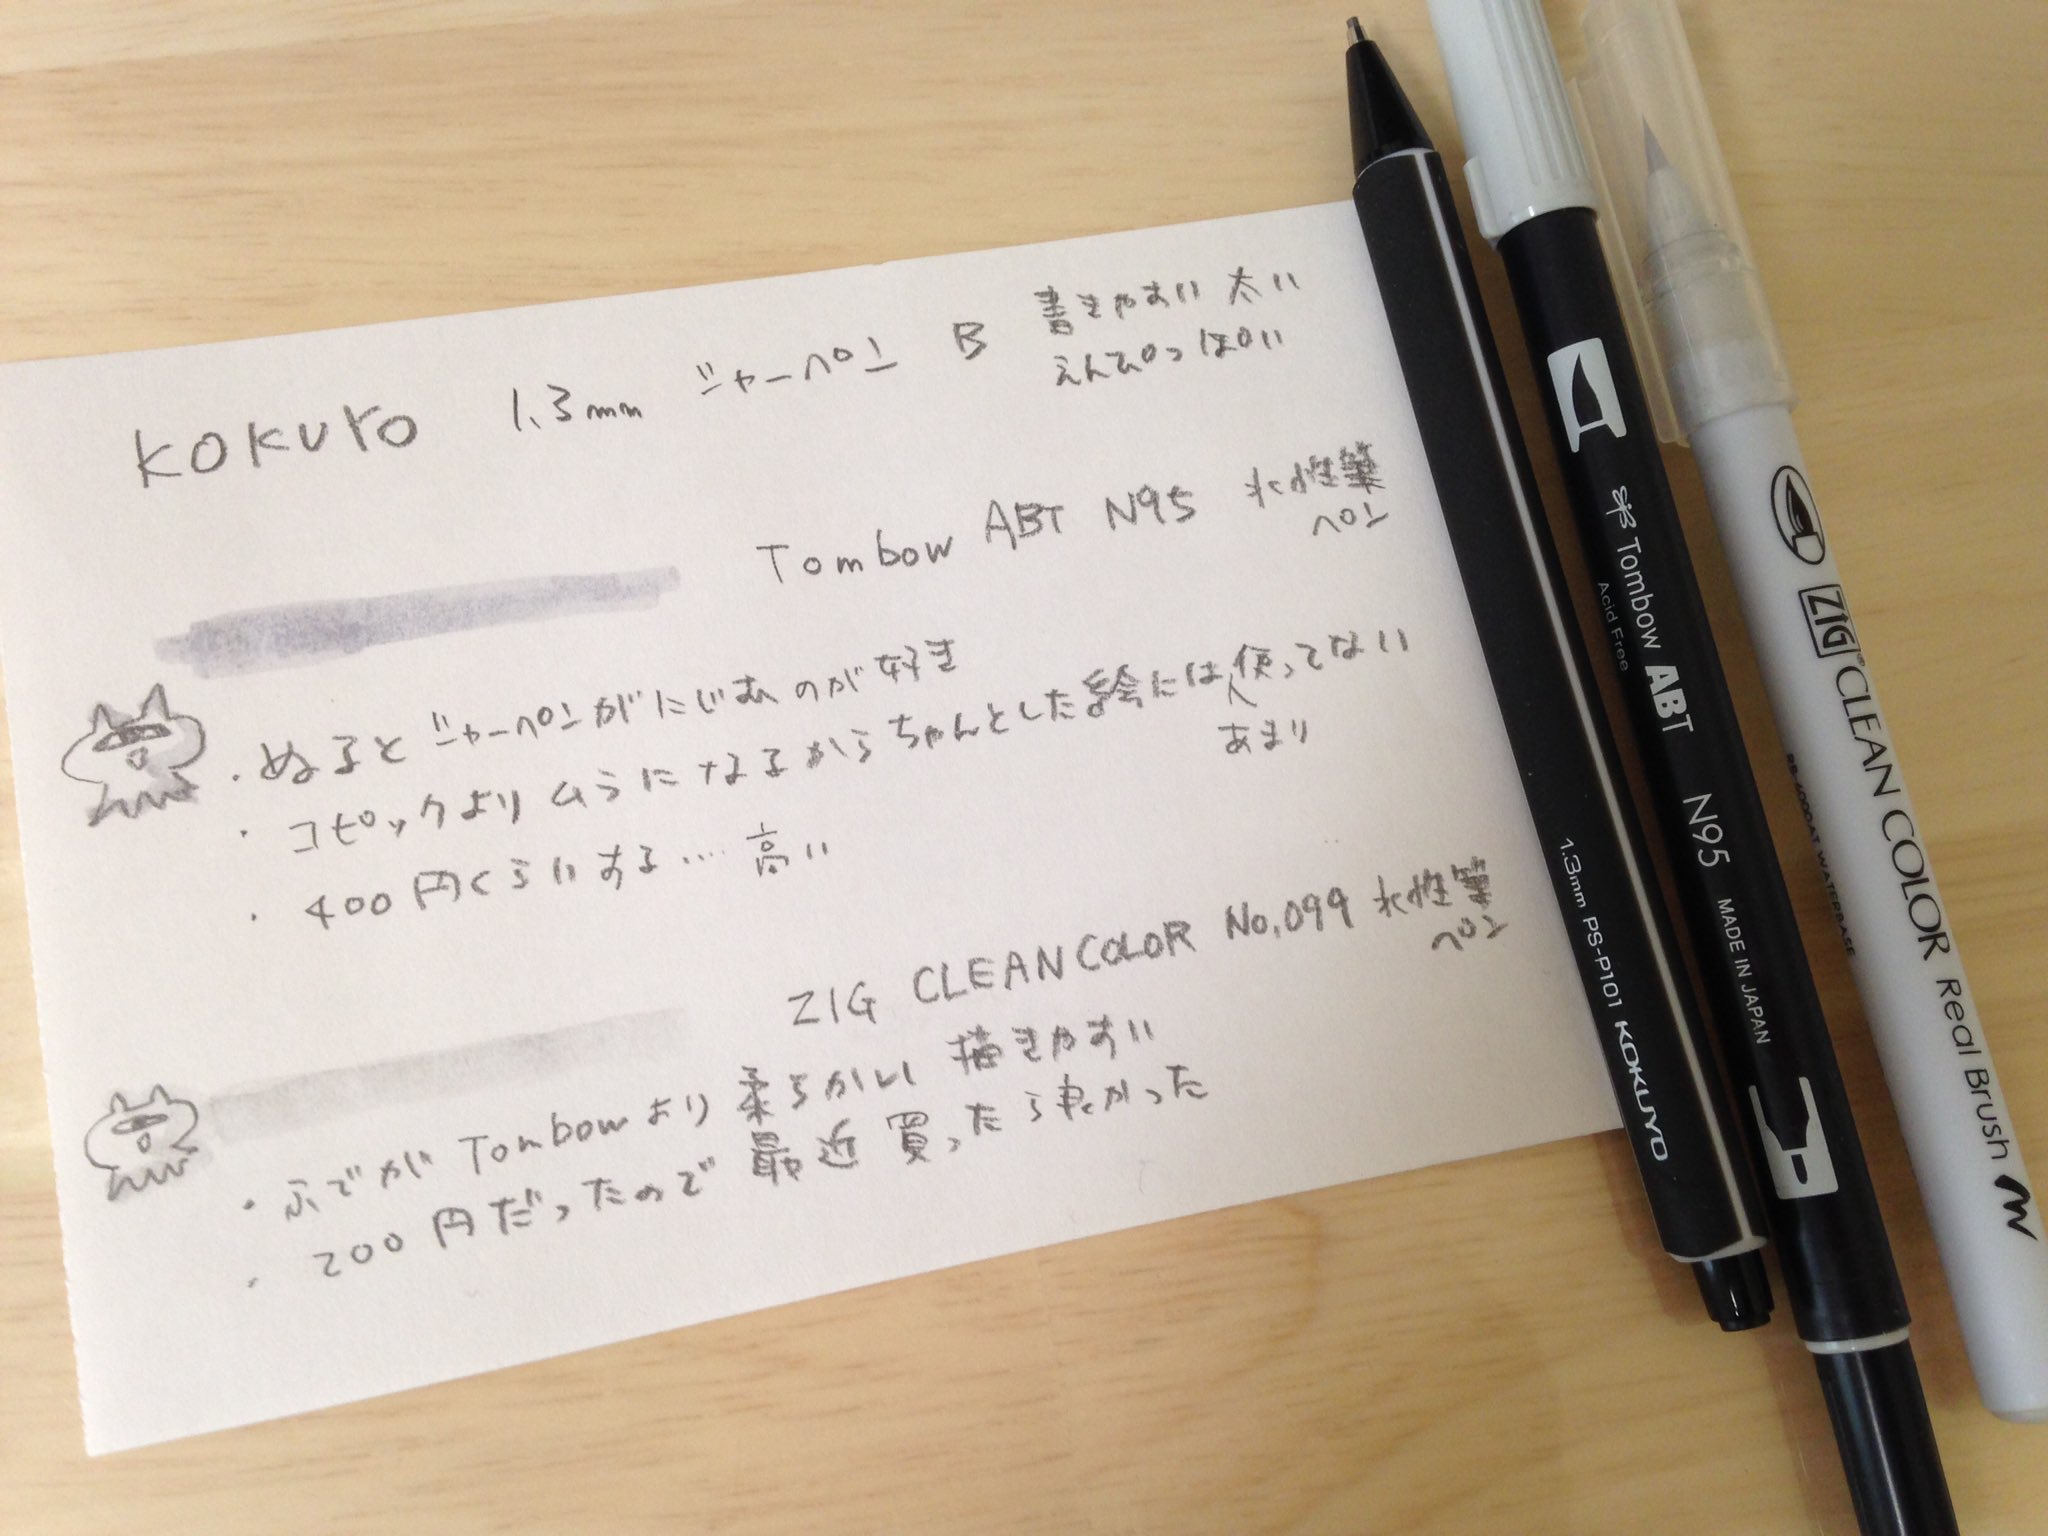 KOKUYO 1.3mm シャーペン B 書きやすい 太い
えんぴつっぽい
Tombow ABT N95 水性筆
ペン
・ぬるとシャーペンがにじむのが好き
・コピックよりムラになるからちゃんとした絵には使ってない
あまり
・400円くらいする…高い
ZIG CLEAN COLOR No.099 水性筆
ペン
・ふでがTombowより柔らかい 描きやすい
・200円だったので最近買ったら良かった
1.3mm PS-P101 KOKUYO
Tombow ABT N95 MADE IN JAPAN
Acid Free
ZIG® CLEAN COLOR Real Brush
RB-6000AT WATERBASE